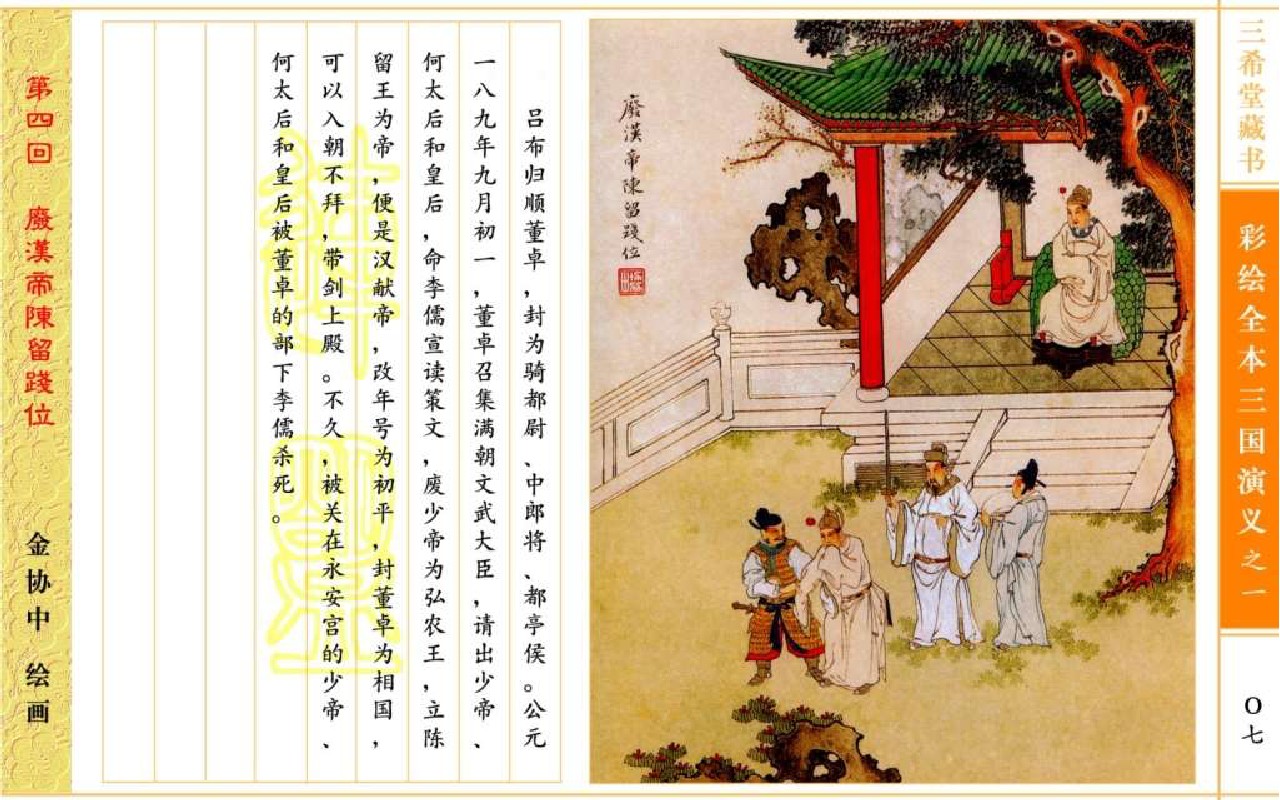 三希堂藏书
彩绘全本三国演义之一
〇七
廢漢帝陳留踐位
吕布归顺董卓，封为骑都尉、中郎将、都亭侯。公元
一八九年九月初一，董卓召集满朝文武大臣，请出少帝、
何太后和皇后，命李儒宣读策文，废少帝为弘农王，立陈
留王为帝，便是汉献帝，改年号为初平，封董卓为相国，
可以入朝不拜，带剑上殿。不久，被关在永安宫的少帝、
何太后和皇后被董卓的部下李儒杀死。
第四回 廢漢帝陳留踐位
金协中 绘画